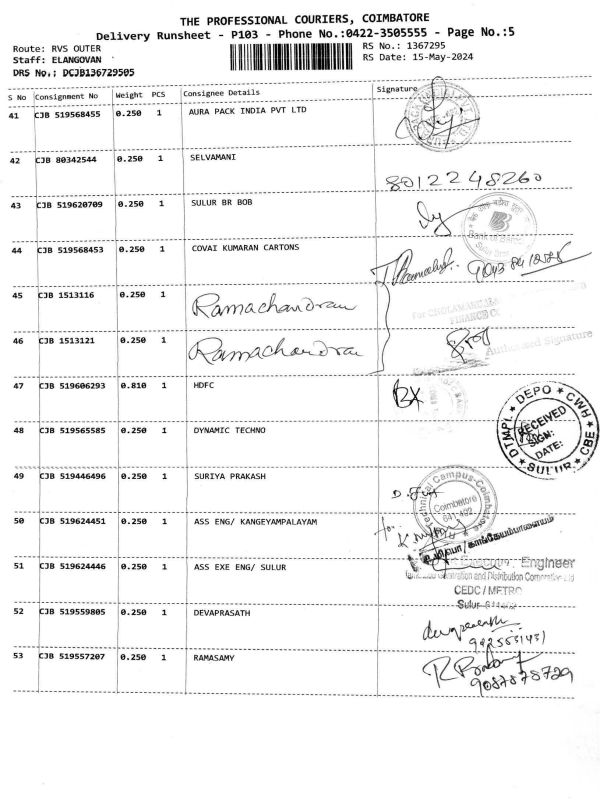 THE PROFESSIONAL COURIERS, COIMBATORE
Delivery Runsheet - P103 - Phone No.:0422-3505555 - Page No.:5
Route: RVS OUTER
RS No.: 1367295
Staff: ELANGOVAN
RS Date: 15-May-2024
DRS No.: DCJB136729505
S No Consignment No Weight PCS Consignee Details Signature
41 CJB 519568455 0.250 1 AURA PACK INDIA PVT LTD
42 CJB 80342544 0.250 1 SELVAMANI
8012248260
43 CJB 519620709 0.250 1 SULUR BR BOB
Bank of Baroda
44 CJB 519568453 0.250 1 COVAI KUMARAN CARTONS
45 CJB 1513116 0.250 1 Ramachandran
For CHOLAMANDALAM
FINANCE CO
46 CJB 1513121 0.250 1 Ramachandran
Authorised Signature
47 CJB 519606293 0.810 1 HDFC
48 CJB 519565585 0.250 1 DYNAMIC TECHNO
DTMPL ★ DEPO ★ CWH ★ CBE ★ SULUR ★
RECEIVED
SIGN:
DATE:
49 CJB 519446496 0.250 1 SURIYA PRAKASH
Technical Campus-Coimbatore
Coimbatore
641 402
50 CJB 519624451 0.250 1 ASS ENG/ KANGEYAMPALAYAM
for
51 CJB 519624446 0.250 1 ASS EXE ENG/ SULUR
Engineer
Generation and Distribution Corporation Ltd
CEDC / METRO
Sulur
52 CJB 519559805 0.250 1 DEVAPRASATH
devaprasath
53 CJB 519557207 0.250 1 RAMASAMY
9087878729